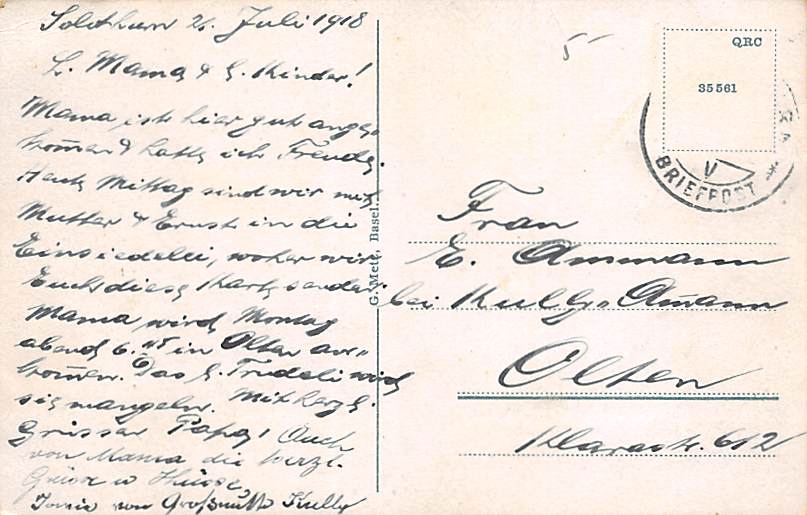 Solothurn 21. Juli 1918
L. Mama & l. Kinder!
Mama ist hier gut ange-
kom̄en & hatte ich Freude.
Heute Mittag sind wir mit
Mutter & Ernst in die
Einsiedelei, woher wir
Euch diese Karte senden.
Mama wird Montag
abend 6.15 in Olten an-
kom̄en. Das l. Trudeli wird
sie mangeln. Mit herzl.
Grüssen Papa! Auch
von Mama die herzl.
Grüsse u Küsse,
sowie von Großmutter Kully
G. Metz, Basel.
QRC
35561
V
BRIEFPOST
5
Frau
E. Ammann
bei Kully-Am̄ann
Olten
Klarastr. 612